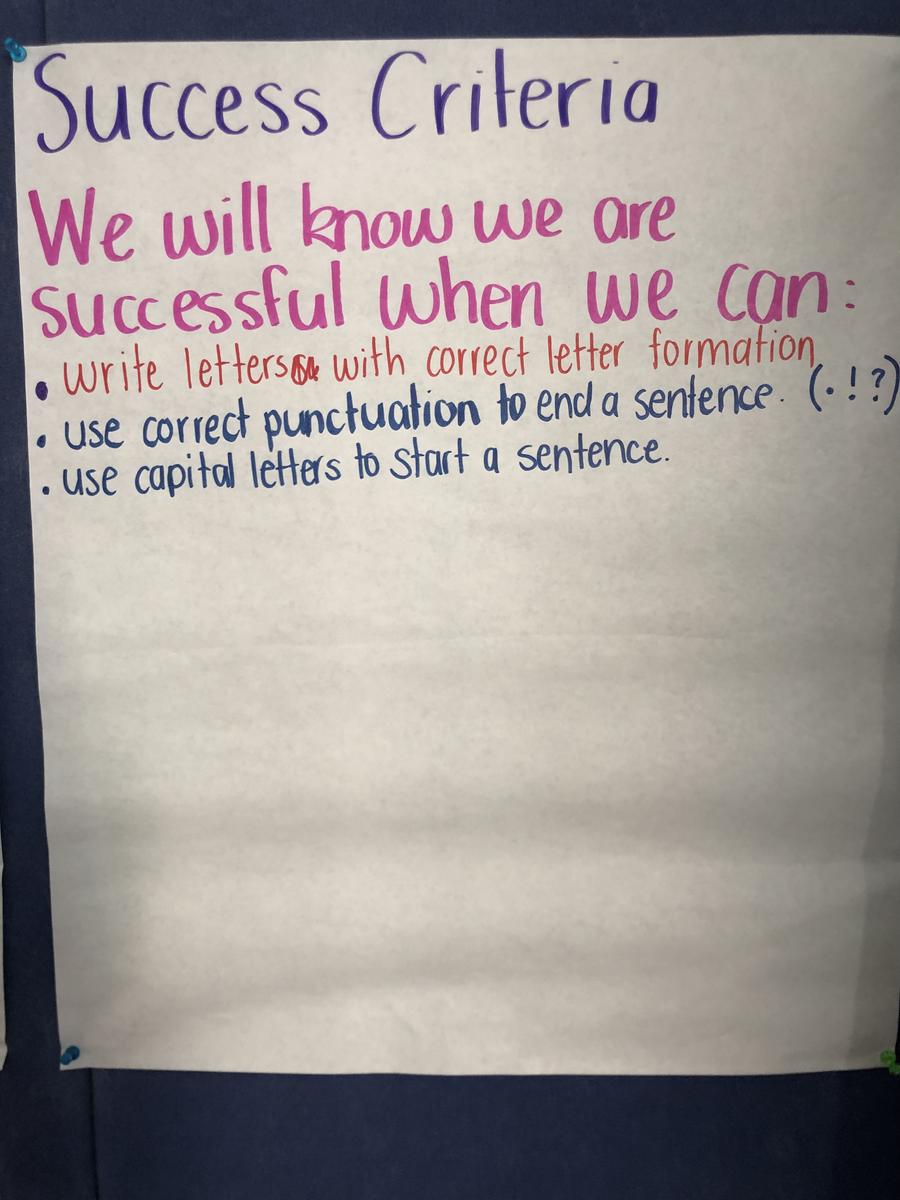 Success Criteria
We will know we are
successful when we can:
• write letters with correct letter formation
• use correct punctuation to end a sentence. (. ! ?)
• use capital letters to start a sentence.